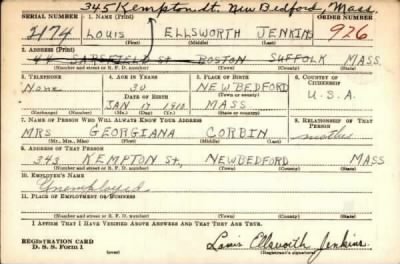 345 Kempton st, New Bedford, Mass.
SERIAL NUMBER 1. NAME (Print) ORDER NUMBER
2174 LOUIS ELLSWORTH JENKINS 926
(First) (Middle) (Last)
2. ADDRESS (Print)
44 ST BOSTON SUFFOLK MASS.
(Number and street or R. F. D. number) (Town) (County) (State)
3. TELEPHONE 4. AGE IN YEARS 5. PLACE OF BIRTH 6. COUNTRY OF CITIZENSHIP
None 30 NEW BEDFORD
DATE OF BIRTH (Town or county)
JAN 17 1910 MASS U.S.A
(Exchange) (No.) (Mo.) (Day) (Yr.) (State or country)
7. NAME OF PERSON WHO WILL ALWAYS KNOW YOUR ADDRESS 8. RELATIONSHIP OF THAT PERSON
MRS GEORGIANA CORBIN mother
(Mr., Mrs., Miss) (First) (Middle) (Last)
9. ADDRESS OF THAT PERSON
343 KEMPTON St, NEWBEDFORD MASS
(Number and street or R. F. D. number) (Town) (County) (State)
10. EMPLOYER'S NAME
Unemployed
11. PLACE OF EMPLOYMENT OR BUSINESS
(Number and street or R. F. D. number) (Town) (County) (State)
I AFFIRM THAT I HAVE VERIFIED ABOVE ANSWERS AND THAT THEY ARE TRUE.
REGISTRATION CARD
D. S. S. Form 1
Louis Ellsworth Jenkins
(Registrant's signature)